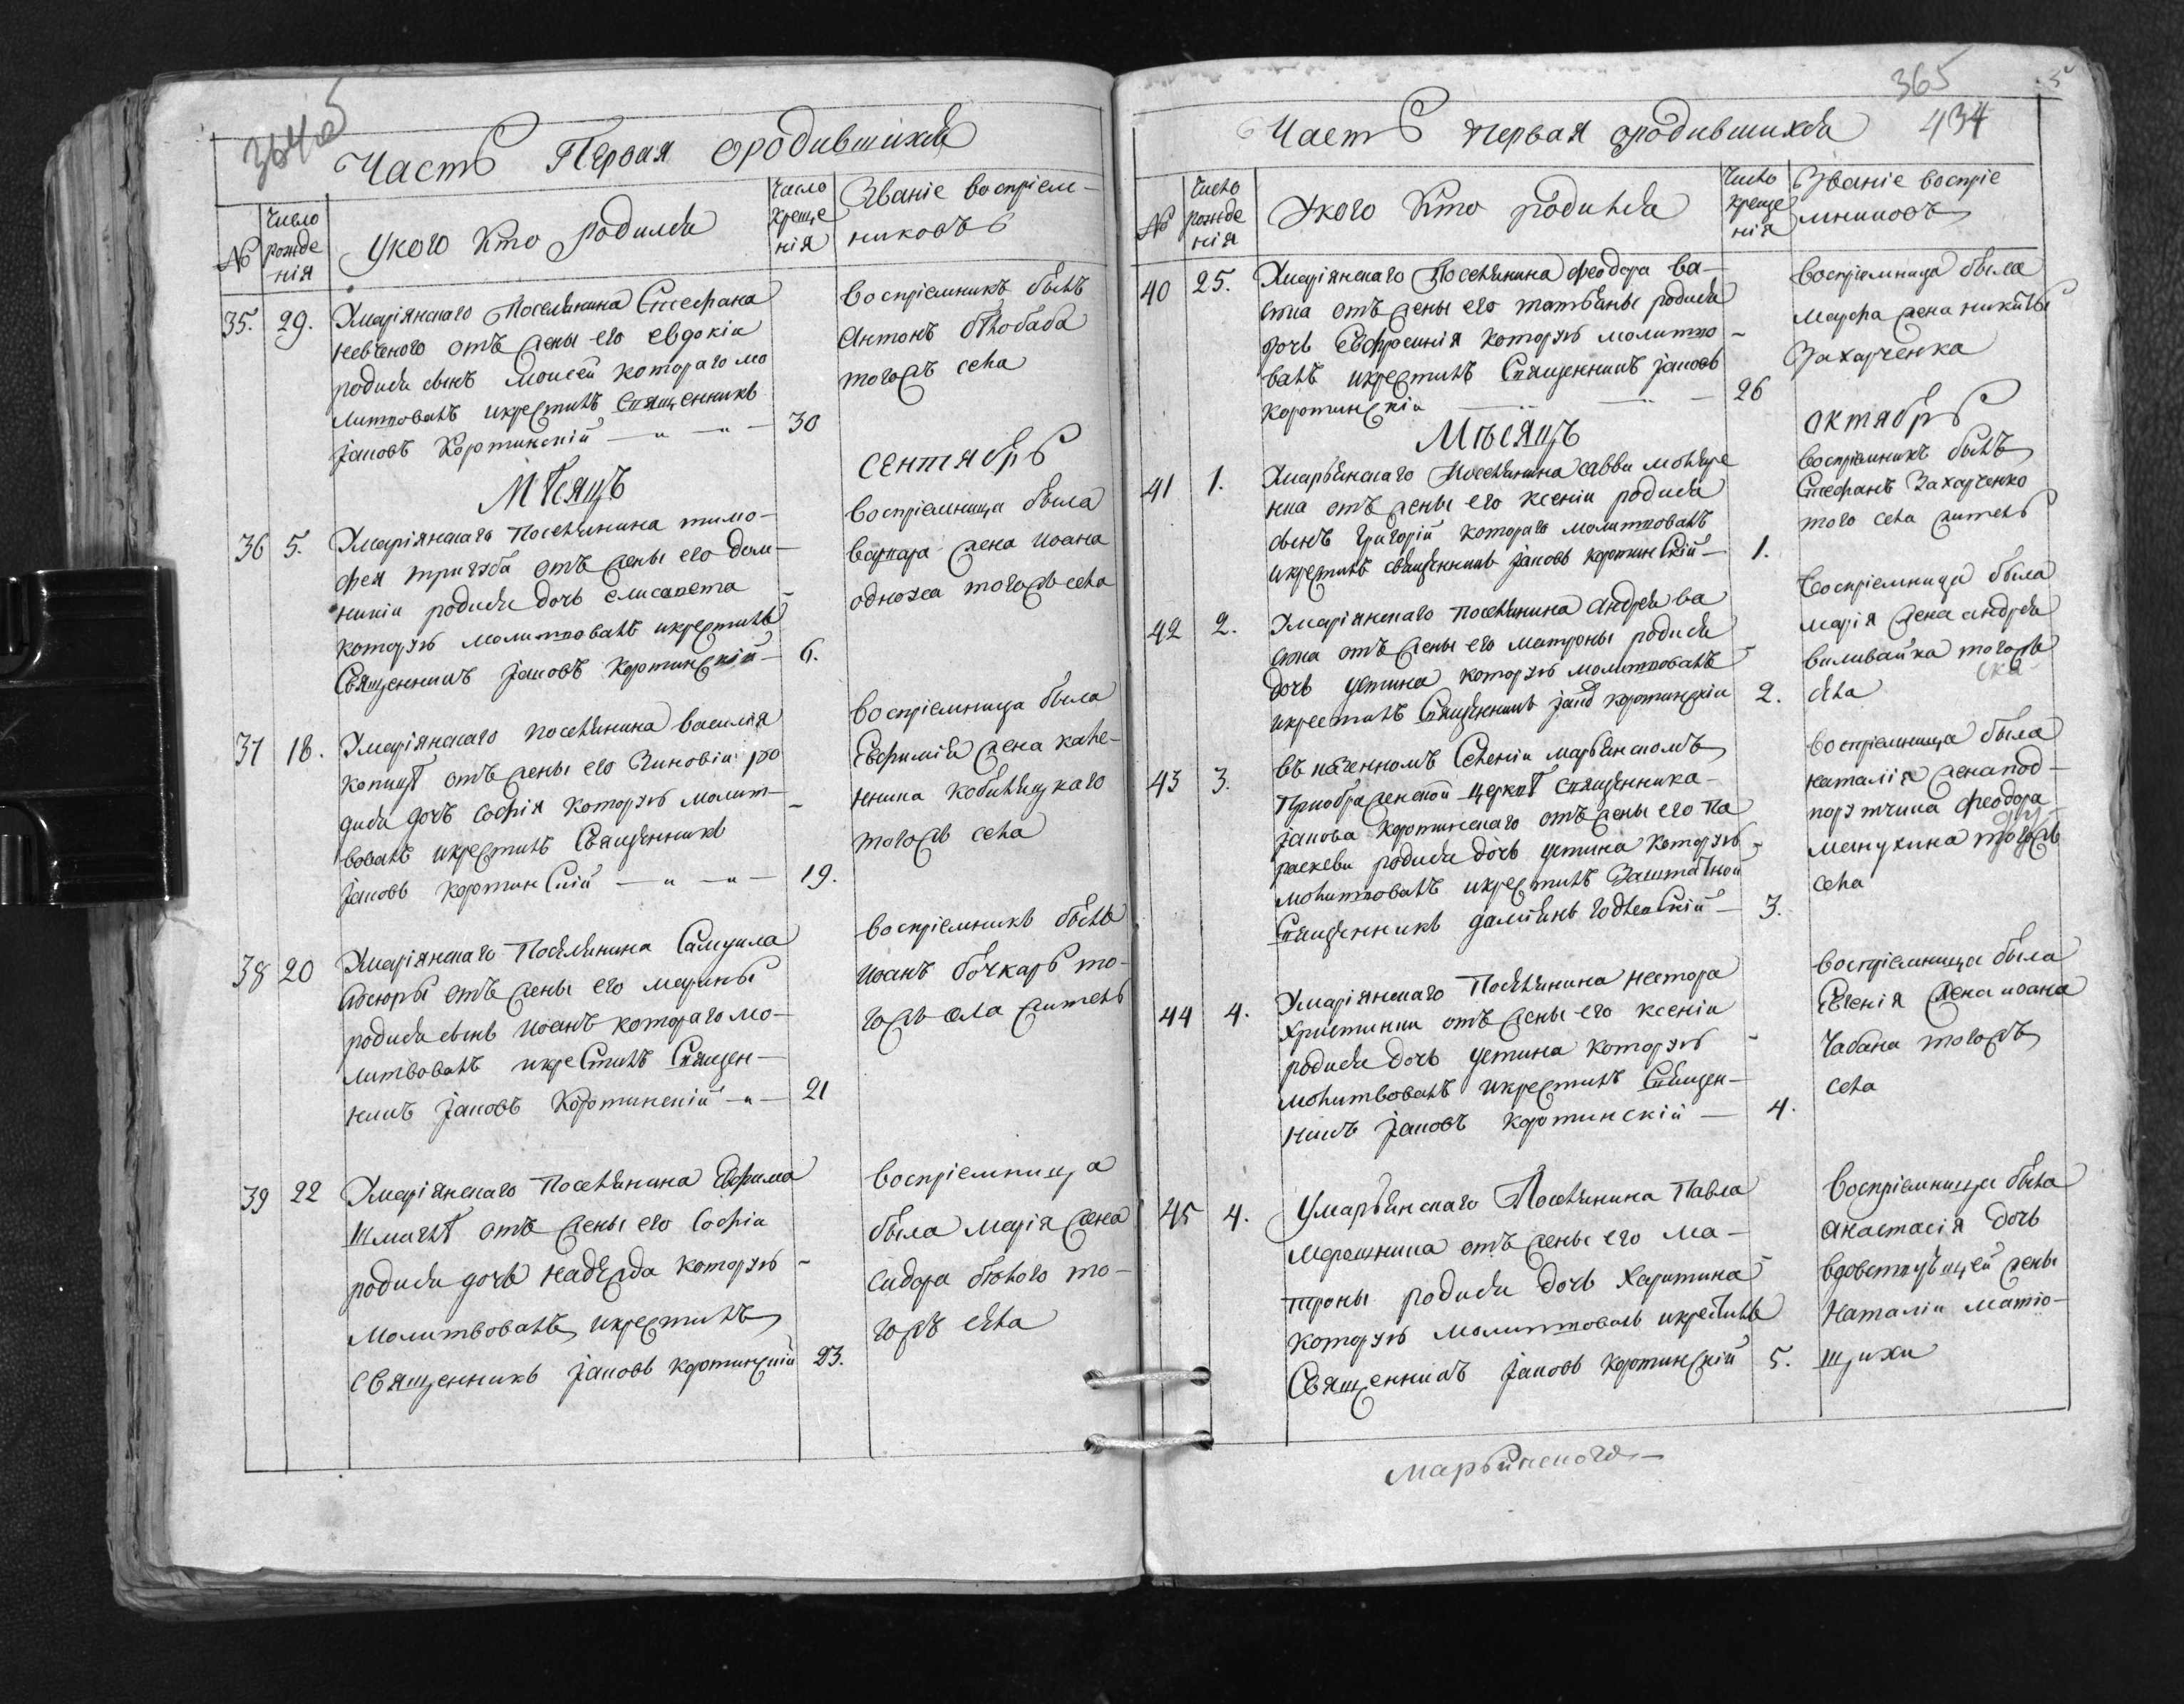 Часть Первая ородившихся
№
Число рожденія
Укого Кто родился
Число Крещенія
Званіе воспріемниковъ
35. 29.
Умаріянскаго Поселянина Стефана
отъ жены его евдокіи
родился сынъ Моисей котораго мо
литвовалъ икрестилъ Священникъ
Іаковъ Коротинскій 30
воспріемникъ былъ
Антонъ бѣлобаба
тогожъ села
Мѣсяцъ сентябрь
36 5.
Умаріянскаго Поселянина тимо-
фея тригуба отъ жены его дом-
никіи родися дочь елисавета
которую молитвовалъ икрестилъ
Священникъ Іаковъ Коротинскій 6.
воспріемница была
варвара жена иоана
тогожъ села
37 18.
Умаріянскаго поселянина василія
отъ жены его Зиновіи ро
дися дочь Софія которую молит-
вовалъ икрестилъ Священникъ
Іаковъ Коротинскій 19.
воспріемница была
Евфимія жена кале-
ника
тогожъ села
38 20
Умаріянскаго Поселянина Самуила
отъ жены его марины
родися сынъ иоанъ котораго мо-
литвовалъ икрестилъ Священ-
никъ Іаковъ Коротинскій 21
воспріемникъ былъ
иоанъ бочкарь то-
гожъ села житель
39 22
Умаріянскаго Поселянина Ефима
отъ жены его Софіи
родися дочь надежда которую
молитвовалъ икрестилъ
священникъ Іаковъ коротинскій 23.
воспріемница
была марія жена
сидора бѣлого то-
гожъ села
365
434
Часть первая ородившихся
№
Число рожденія
Укого Кто родился
Число крещенія
Званіе воспріемниковъ
40 25.
Умаріянскаго Поселянина феодора ва-
отъ жены его татьяны родися
дочь Евфросинія которую молитво-
валъ икрестилъ Священникъ Іаковъ
коротинскій 26
воспріемница была
марфа жена никиты
Захарченка
Мѣсяцъ октябрь
41 1.
Умарьинскаго Поселянина саввы
отъ жены его ксеніи родися
сынъ григорій котораго молитвовалъ
икрестилъ священникъ Іаковъ коротинскій 1.
воспріемникъ былъ
Стефанъ Захарченко
того села житель
42 2.
Умаріянскаго поселянина андрея ва
отъ жены его матроны родися
дочь устина которую молитвовалъ
икрестилъ Священникъ коротинскій 2.
воспріемница была
марія жена андрея
тогожъ
села
43 3.
въ казенномъ селеніи марьинскомъ
Приображенской церкви священника
Іакова коротинскаго отъ жены его Па
раскевы родися дочь устина которую
молитвовалъ икрестилъ Заштатной
священникъ даміянъ 3.
воспріемница была
наталія жена под-
порутчика феодора
манухина тогожъ
села
44 4.
Умаріянскаго Поселянина нестора
отъ жены его ксеніи
родися дочь устина которую
молитвовалъ икрестилъ Священ-
никъ Іаковъ коротинскій 4.
воспріемница была
Евгенія жена иоана
Чабана тогожъ
села
45 4.
Умарьинскаго Поселянина Павла
отъ жены его ма-
троны родися дочь Харитина
которую молитвовалъ икрестилъ
Священникъ Іаковъ коротинскій 5.
воспріемница была
анастасія дочь
вдовствующей жены
наталіи матю-
щихи
Марьинского